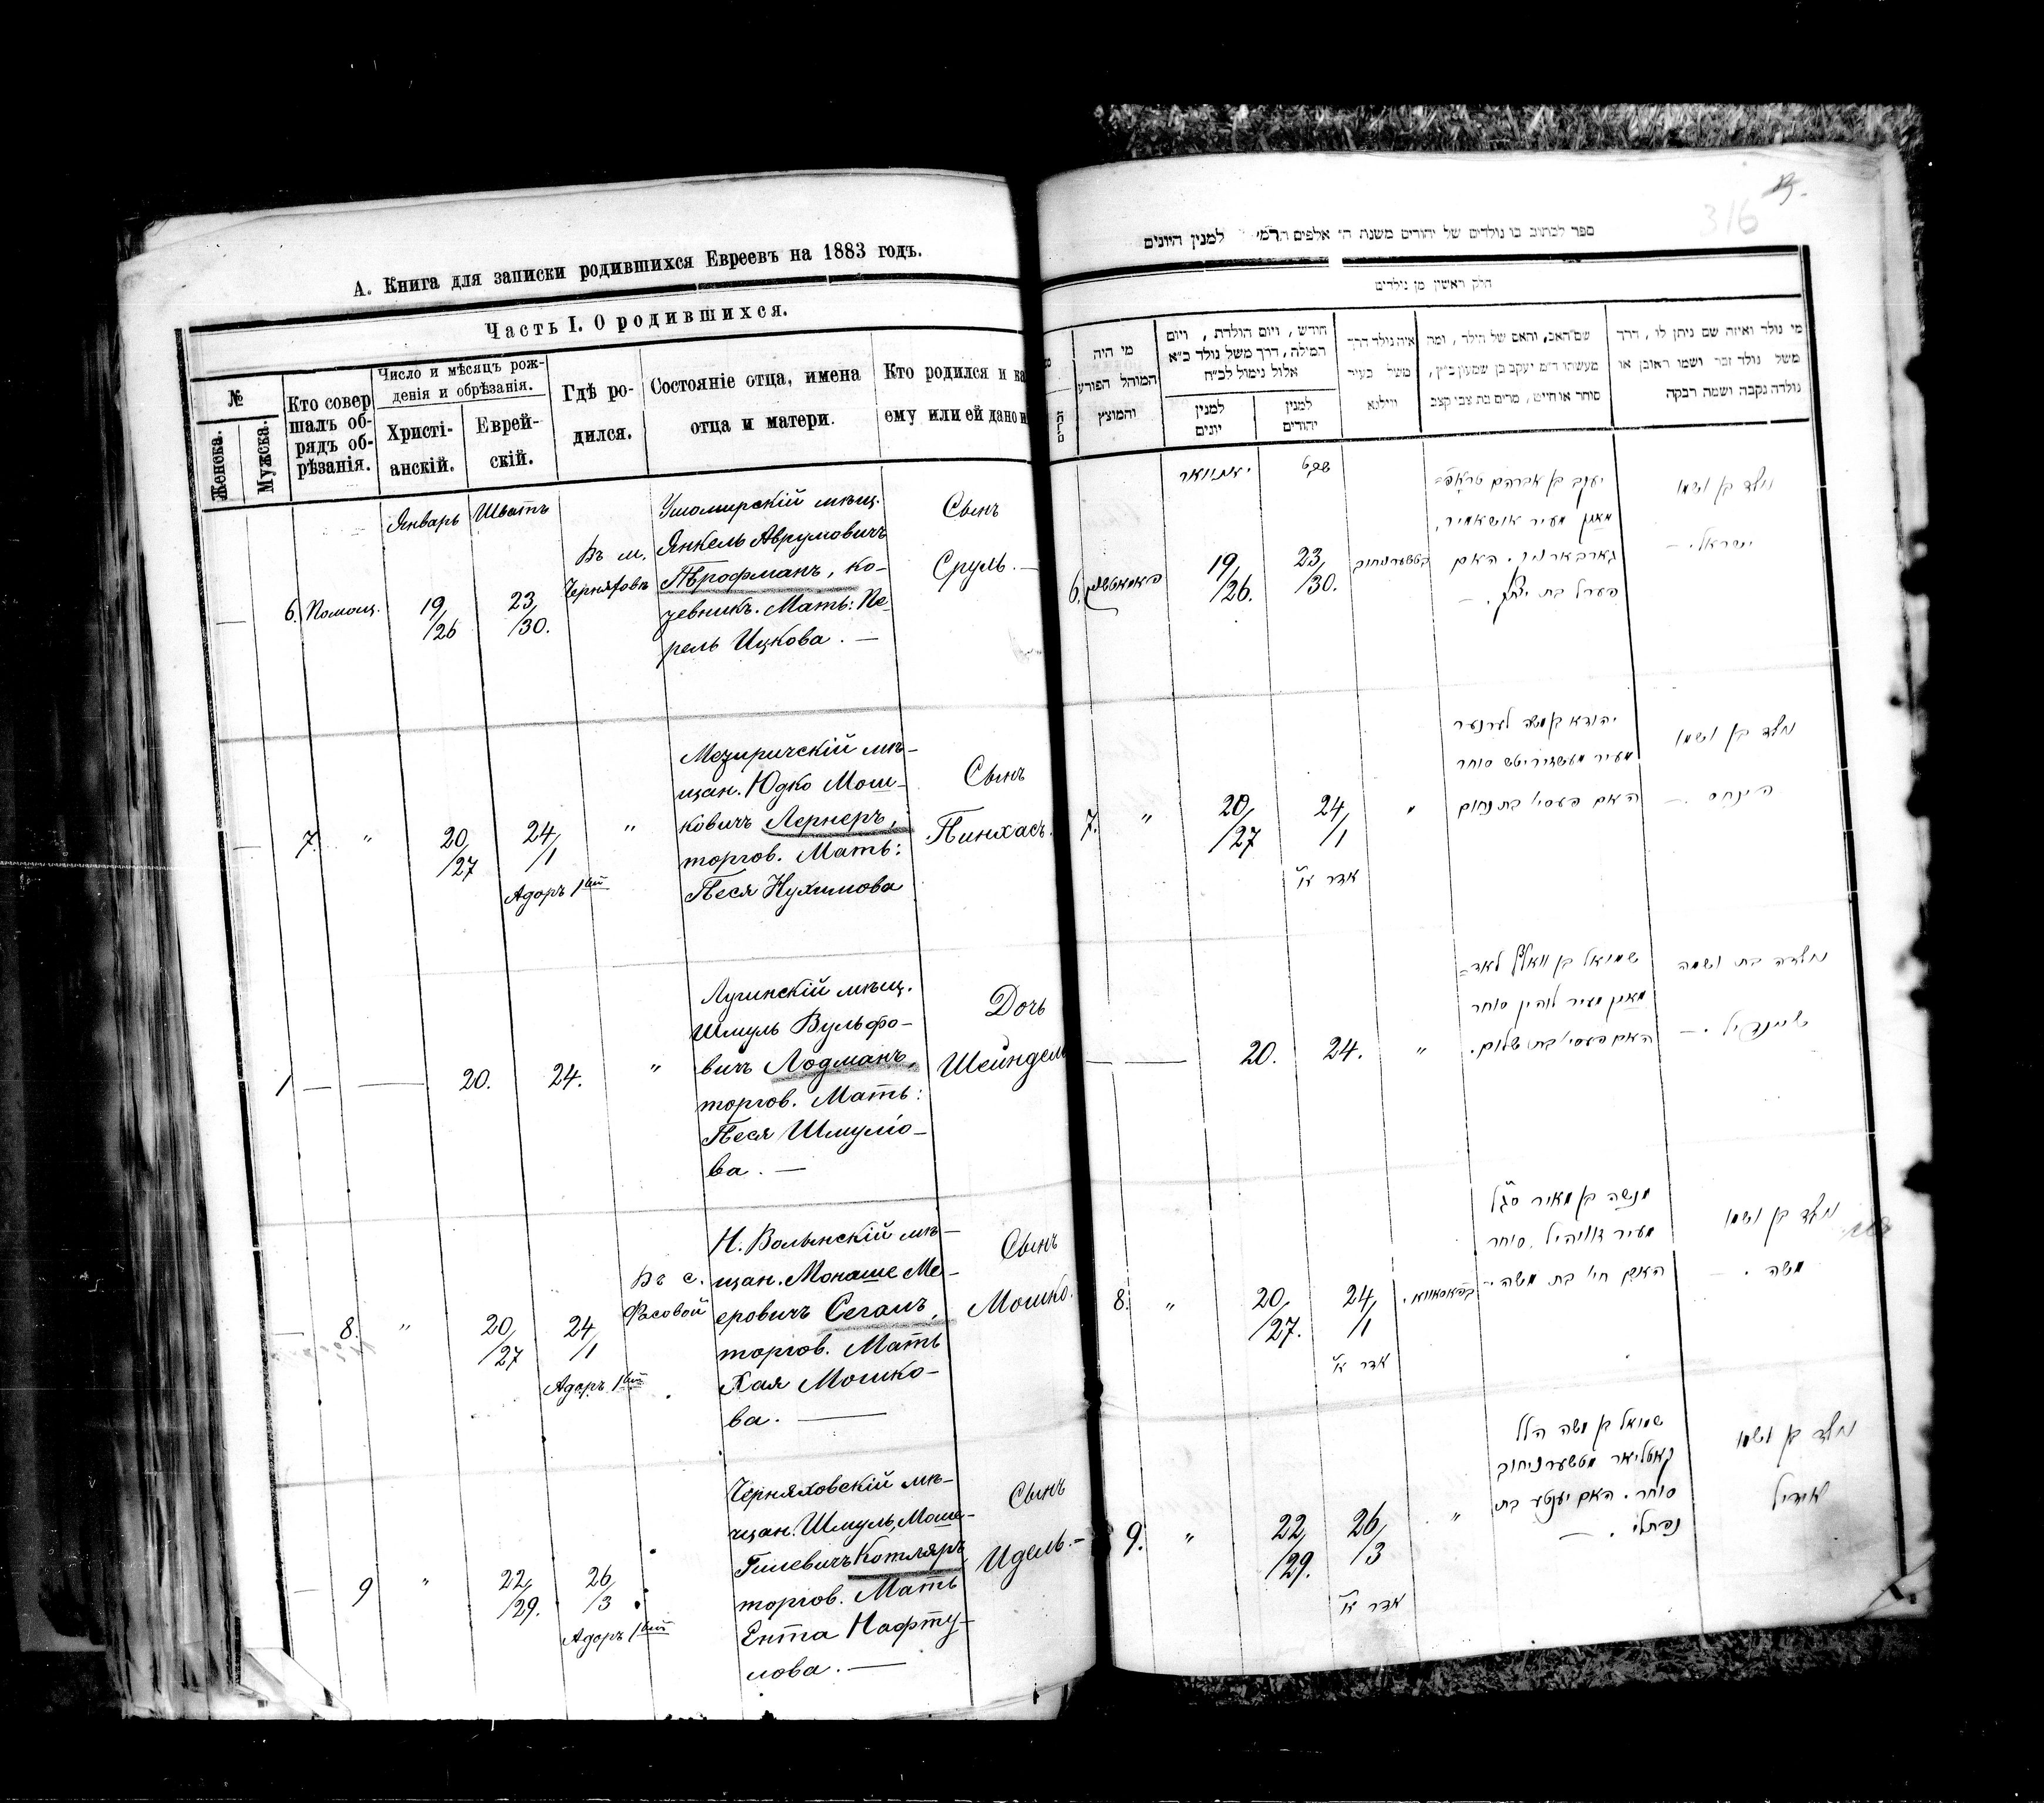 А. Книга для записки родившихся Евреевъ на 1883 годъ.
Часть I. О родившихся.
№
Женска.
Мужска.
Кто совер
шалъ об-
рядъ об-
рѣзанія.
Число и мѣсяцъ рож-
денія и обрѣзанія.
Христі-
анскій.
Еврей-
скій.
Гдѣ ро-
дился.
Состояніе отца, имена
отца и матери.
Кто родился и ка
ему или ей дано и
Январь
Шватъ
—
6.
Помощ.
19/
/26
23/
/30.
Въ м.
Черняховъ
Ушомирскій мѣщ.
Янкель Аврумовичъ
Трофманъ, ко-
жевникъ. Мать: Пе-
рель Ицкова. —
Сынъ
Сруль. —
—
7.
"
20/
/27
24/
/1
Адаръ 1ый
"
Мезиричскій мѣ-
щан. Юдко Мош-
ковичъ Лернеръ,
торгов. Мать:
Песя Нухимова
Сынъ
Пинхасъ.
1
—
—
20.
24.
"
Лугинскій мѣщ.
Шмуль Вульфо-
вичъ Лодманъ,
торгов. Мать:
Песя Шмуліо-
ва. —
Дочь
Шейндель
—
8.
"
20/
/27
24/
/1
Адаръ 1ый
Въ с.
Фасовой
Н. Волынскій мѣ-
щан. Монаше Ме-
еровичъ Сегалъ,
торгов. Мать
Хая Мошко-
ва. —
Сынъ
Мошко.
—
9
"
22/
/29.
26/
/3
Адаръ 1ый
Черняховскій мѣ-
щан. Шмуль Моше-
Гилевичъ Котляръ
торгов. Мать
Ента Нафту-
лова. —
Сынъ
Идель. —
316
ספר לכתוב בו נולדים של יהודים משנת ה' אלפים למנין היונים
חלק ראשון מן נולדים
מי היה
המוהל הפורע
והמוצץ
חודש, ויום הולדת, ויום
המילה, דרך משל נולד כ"א
אלול נימול לכ"ח
למנין
יונים
למנין
יהודים
איה נולד דרך
משל בעיר
ווילנא
שם האב, והאם של הילד, ומה
מעשתו ד"מ יעקב בן שמעון כ"ץ,
סוחר או חייט, מרים בת צבי קצב
מי נולד ואיזה שם ניתן לו, דרך
משל נולד זכר ושמו ראובן או
נולדה נקבה ושמה רבקה
יאנוואר
שבט
6.
19/
/26.
23/
/30.
יעקב בן אברהם טראפ=
מאן מעיר אושאמיר,
גארבארניק. האם
פערל בת יצחק. —
נולד בן ושמו
ישראל. —
7.
"
20/
/27
24/
/1
אדר א'
"
יהודא בן משה לערנער
מעיר מעשזיריטש סוחר
האם פעסי' בת נחום
נולד בן ושמו
פינחס —
—
—
20.
24.
"
שמואל בן וואלף לאד=
מאן מעיר לוהין סוחר
האם פעסי' בת שלום.
נולדה בת ושמה
שיינדיל. —
8.
"
20/
/27.
24/
/1
אדר א'
בפאסאווא.
מנשה בן מאיר סג"ל
מעיר זוויהיל. סוחר
האם חי' בת משה. —
נולד בן ושמו
משה. —
9.
"
22/
/29.
26/
/3
אדר א'
"
שמואל בן משה הלל
קאטליאר מטשערניחוב
סוחר. האם יענטע בת
נפתלי. —
נולד בן ושמו
אידיל